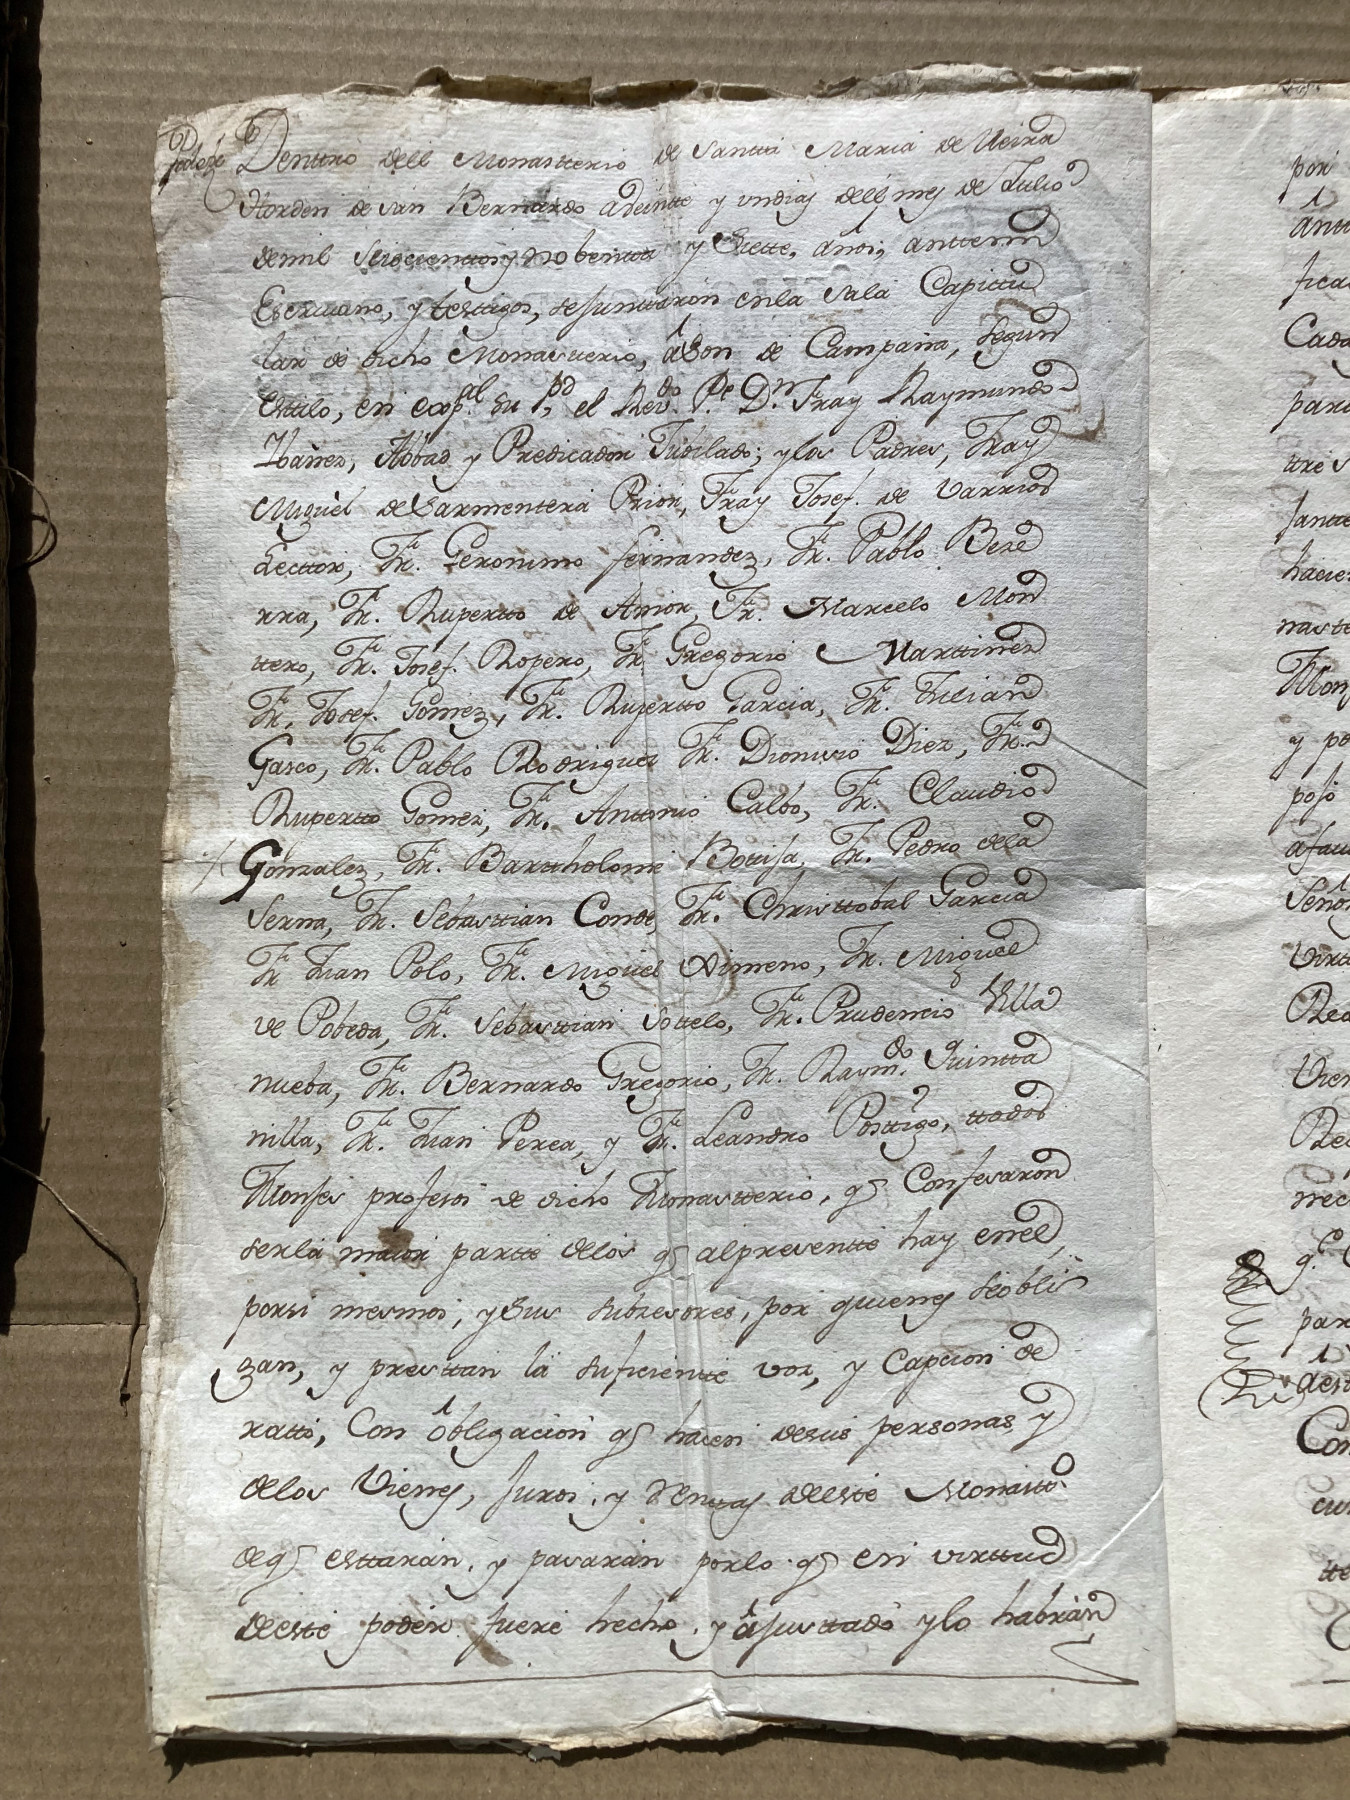 Poder Denttro dell Monastterio de Santta Maria de Ueira
Horden de san Bernardo a Veintte y un dias dell mes de Julio
de mil Settecienttos y nobentta y Siette, años, antte mi
Escriuano, y testigos, se junttaron en la Sala Capittu
lar de dicho Monastterio, á Son de Campaña, segun
estilo, en esp.al su P.d el Rev.do P.e D.n Fray Raymundo
Ybañez, Abbad y Predicador Jubilado; y los Padres, Fray
Miguel de Sarmentera Prior, Fray Josef. de Varrios
Lecttor, Fr. Geronimo fernandez, Fr. Pablo Beze
rra, Fr. Ruperto de Amor, Fr. Marcelo Mon
ttero, Fr. Josef. Ropero, Fr. Gregorio Marttinez
Fr. Josef. Gomez, Fr. Ruperto Garcia, Fr. Julian
Gasco, Fr. Pablo Rodriguez Fr. Dionisio Diez, Fr.
Rupertto Gomez, Fr. Anttonio Calbo, Fr. Claudio
Gonzalez, Fr. Bartholome Bottija, Fr. Pedro de la
Serna, Fr. Sebasttian Conde, Fr. Christtobal Garcia
Fr Juan Polo, Fr. Miguel Ximeno, Fr. Miguel
de Pobeda, Fr. Sebasttian Sottelo, Fr. Prudencio Villa
nueba, Fr. Bernardo Gregorio, Fr. Raym.do Quintta
nilla, Fr. Juan Perea, y Fr. Leandro Posttigo, ttodos
Monjes profesos de dicho Monastterio, q Confesaron
ser la maior partte de los q al presentte hay en el,
por si mesmos, y sus subcesores, por quienes se obli
gan, y presttan la suficientte voz, y Capcion de
ratto, Con obligacion q hacen de sus personas y
de los Vienes, Juros, y Renttas de estte Monastt.o
de q esttaran, y pasaran por lo q en virttud
de este poder fuere hecho, y ajusttado y lo habran
por
antt
fica
Cada
para
ttres
santte
hacien
nastte
Monj
y po
poso
a fau
Señor
Virtt
Rea
Vien
Re
nec
q.e
par
a est
Con
cu
tte